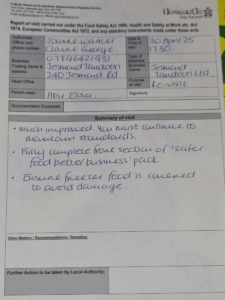 Newcastle
City Council
Report of visit carried out under the Food Safety Act 1990, Health and Safety at Work etc. Act
1974, European Communities Act 1972, and any statutory instruments made under these acts.
Authorised Officer and contact number
Claire George
07894621931
Date & Time of visit
30 April 25
1730
Business Trading name & address
Jesmond Junction
240 Jesmond Rd
Type of business
Business owner
Jesmond
Junction Ltd
Head Office
Purpose of visit
Re-visit
Person seen
Abu Essa
Signature
Documentation Examined
Summary of visit
• Much improved. You must continue to
maintain standards.
• Fully complete front section of 'safer
food better business' pack
• Ensure freezer food is covered
to avoid damage.
Other Matters / Recommendations / Sampling:
Further Action to be taken by Local Authority: